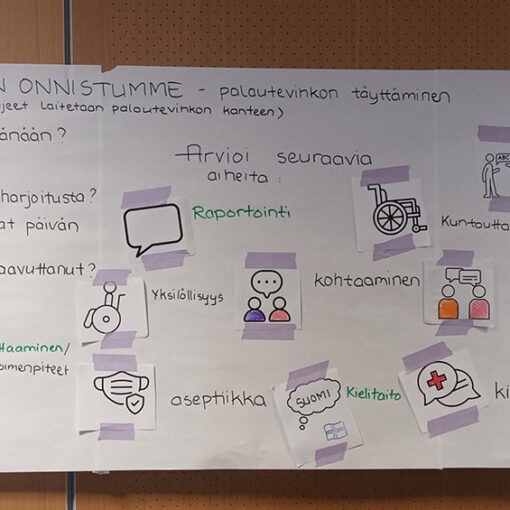 N ONNISTUMME - palautevinkon täyttäminen
jeet laitetaan palautevinkon kanteen)
änään?
Arvioi seuraavia
aiheita:
ABC
harjoitusta?
Raportointi
at päivän
Kuntoutta
aavuttanut?
Yksilöllisyys
kohtaaminen
ttaaminen/
oimenpiteet
aseptiikka
SUOMI
Kielitaito
ki